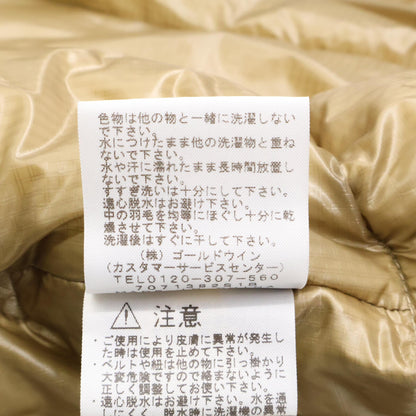 色物は他の物と一緒に洗濯しない
で下さい。
水につけたまま他の洗濯物と重ね
ないで下さい。
水や汗に濡れたまま長時間放置し
ないで下さい。
すすぎ洗いは十分にして下さい。
遠心脱水はお避け下さい。
中の羽毛を均等にほぐし十分に乾
燥させて下さい。
洗濯後はすぐに干して下さい。
(株)ゴールドウイン
(カスタマーサービスセンター)
TEL0120-307-560
⚠ 注意
・ご使用により皮膚に異常が発生し
た時は使用を止めて下さい。
・ベルトや紐は他の物に引っ掛かり
大変危険ですので絡まないように
正しく調整してお使い下さい。
・遠心脱水はお避け下さい。水を通
しにくく、脱水時に洗濯機の異常